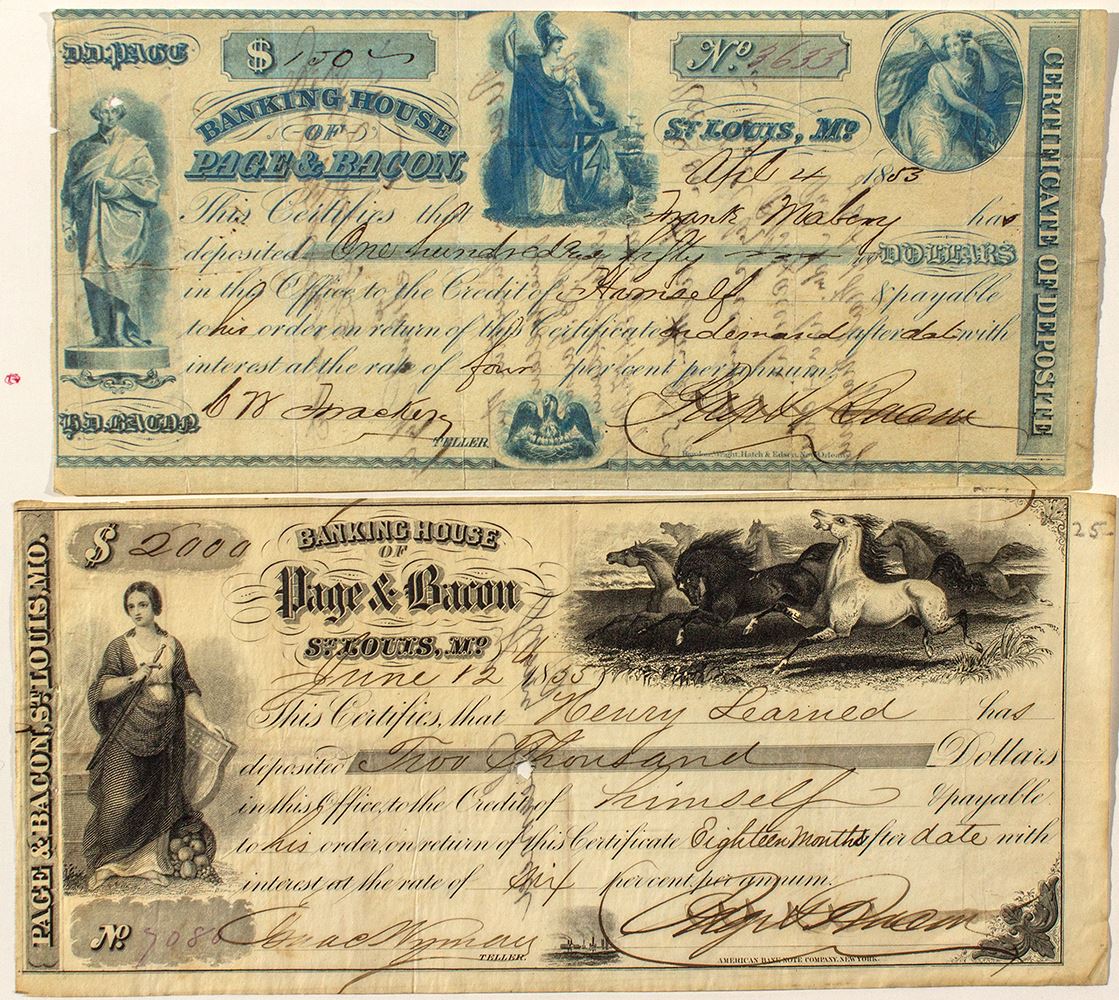 D.D. PAGE
$ 150
No. 3633
BANKING HOUSE
OF
PAGE & BACON,
ST LOUIS, Mo
April 4 1853
CERTIFICATE OF DEPOSITE
This Certifies that Frank Maberry has
deposited One hundred and fifty DOLLARS
in this Office to the Credit of Himself & payable
to his order on return of this Certificate on demand after date with
interest at the rate of four per cent per annum,
H.D. BACON
TELLER
Page & Bacon
PAGE & BACON, ST LOUIS, MO.
$ 2000
BANKING HOUSE
OF
Page & Bacon
ST LOUIS, Mo
25
June 12 1855
This Certifies, that Henry Learned has
deposited Two Thousand Dollars
in this Office, to the Credit of himself & payable
to his order, on return of this Certificate Eighteen Months after date with
interest at the rate of Six per cent. per annum.
No 7080
Isaac Wyman
TELLER.
Page & Bacon
AMERICAN BANK NOTE COMPANY. NEW YORK.